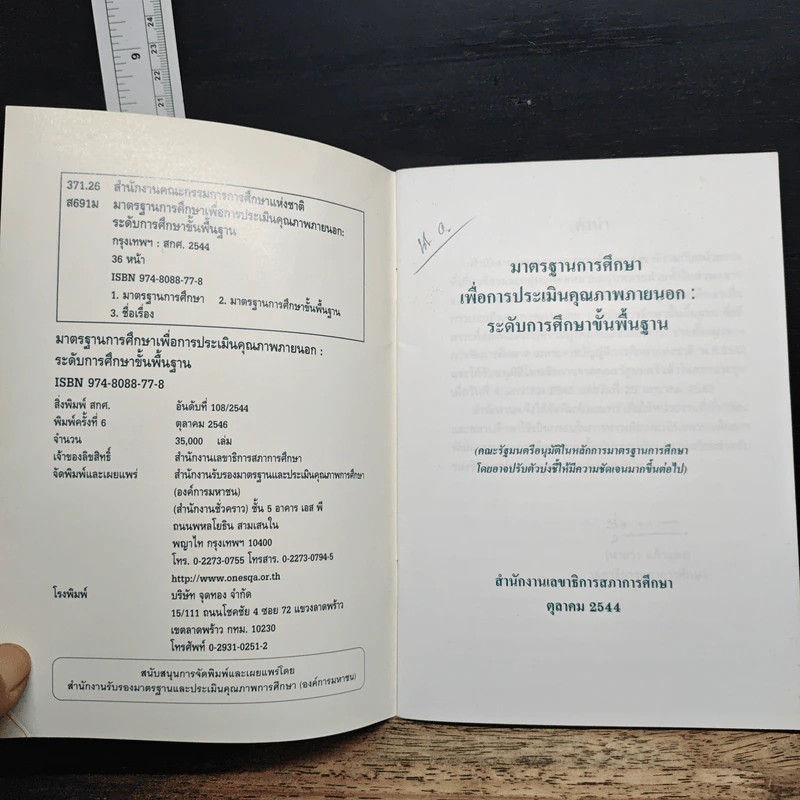 371.26 สำนักงานคณะกรรมการการศึกษาแห่งชาติ
ส691ม มาตรฐานการศึกษาเพื่อการประเมินคุณภาพภายนอก:
ระดับการศึกษาขั้นพื้นฐาน
กรุงเทพฯ : สกศ. 2544
36 หน้า
ISBN 974-8088-77-8
1. มาตรฐานการศึกษา 2. มาตรฐานการศึกษาขั้นพื้นฐาน
3. ชื่อเรื่อง
มาตรฐานการศึกษาเพื่อการประเมินคุณภาพภายนอก :
ระดับการศึกษาขั้นพื้นฐาน
ISBN 974-8088-77-8
สิ่งพิมพ์ สกศ. อันดับที่ 108/2544
พิมพ์ครั้งที่ 6 ตุลาคม 2546
จำนวน 35,000 เล่ม
เจ้าของลิขสิทธิ์ สำนักงานเลขาธิการสภาการศึกษา
จัดพิมพ์และเผยแพร่ สำนักงานรับรองมาตรฐานและประเมินคุณภาพการศึกษา
(องค์การมหาชน)
(สำนักงานชั่วคราว) ชั้น 5 อาคาร เอส พี
ถนนพหลโยธิน สามเสนใน
พญาไท กรุงเทพฯ 10400
โทร. 0-2273-0755 โทรสาร. 0-2273-0794-5
http://www.onesqa.or.th
โรงพิมพ์ บริษัท จุดทอง จำกัด
15/111 ถนนโชคชัย 4 ซอย 72 แขวงลาดพร้าว
เขตลาดพร้าว กทม. 10230
โทรศัพท์ 0-2931-0251-2
สนับสนุนการจัดพิมพ์และเผยแพร่โดย
สำนักงานรับรองมาตรฐานและประเมินคุณภาพการศึกษา (องค์การมหาชน)
มาตรฐานการศึกษา
เพื่อการประเมินคุณภาพภายนอก :
ระดับการศึกษาขั้นพื้นฐาน
(คณะรัฐมนตรีอนุมัติในหลักการมาตรฐานการศึกษา
โดยอาจปรับตัวบ่งชี้ให้มีความชัดเจนมากขึ้นต่อไป)
สำนักงานเลขาธิการสภาการศึกษา
ตุลาคม 2544
9
24
23
22
21